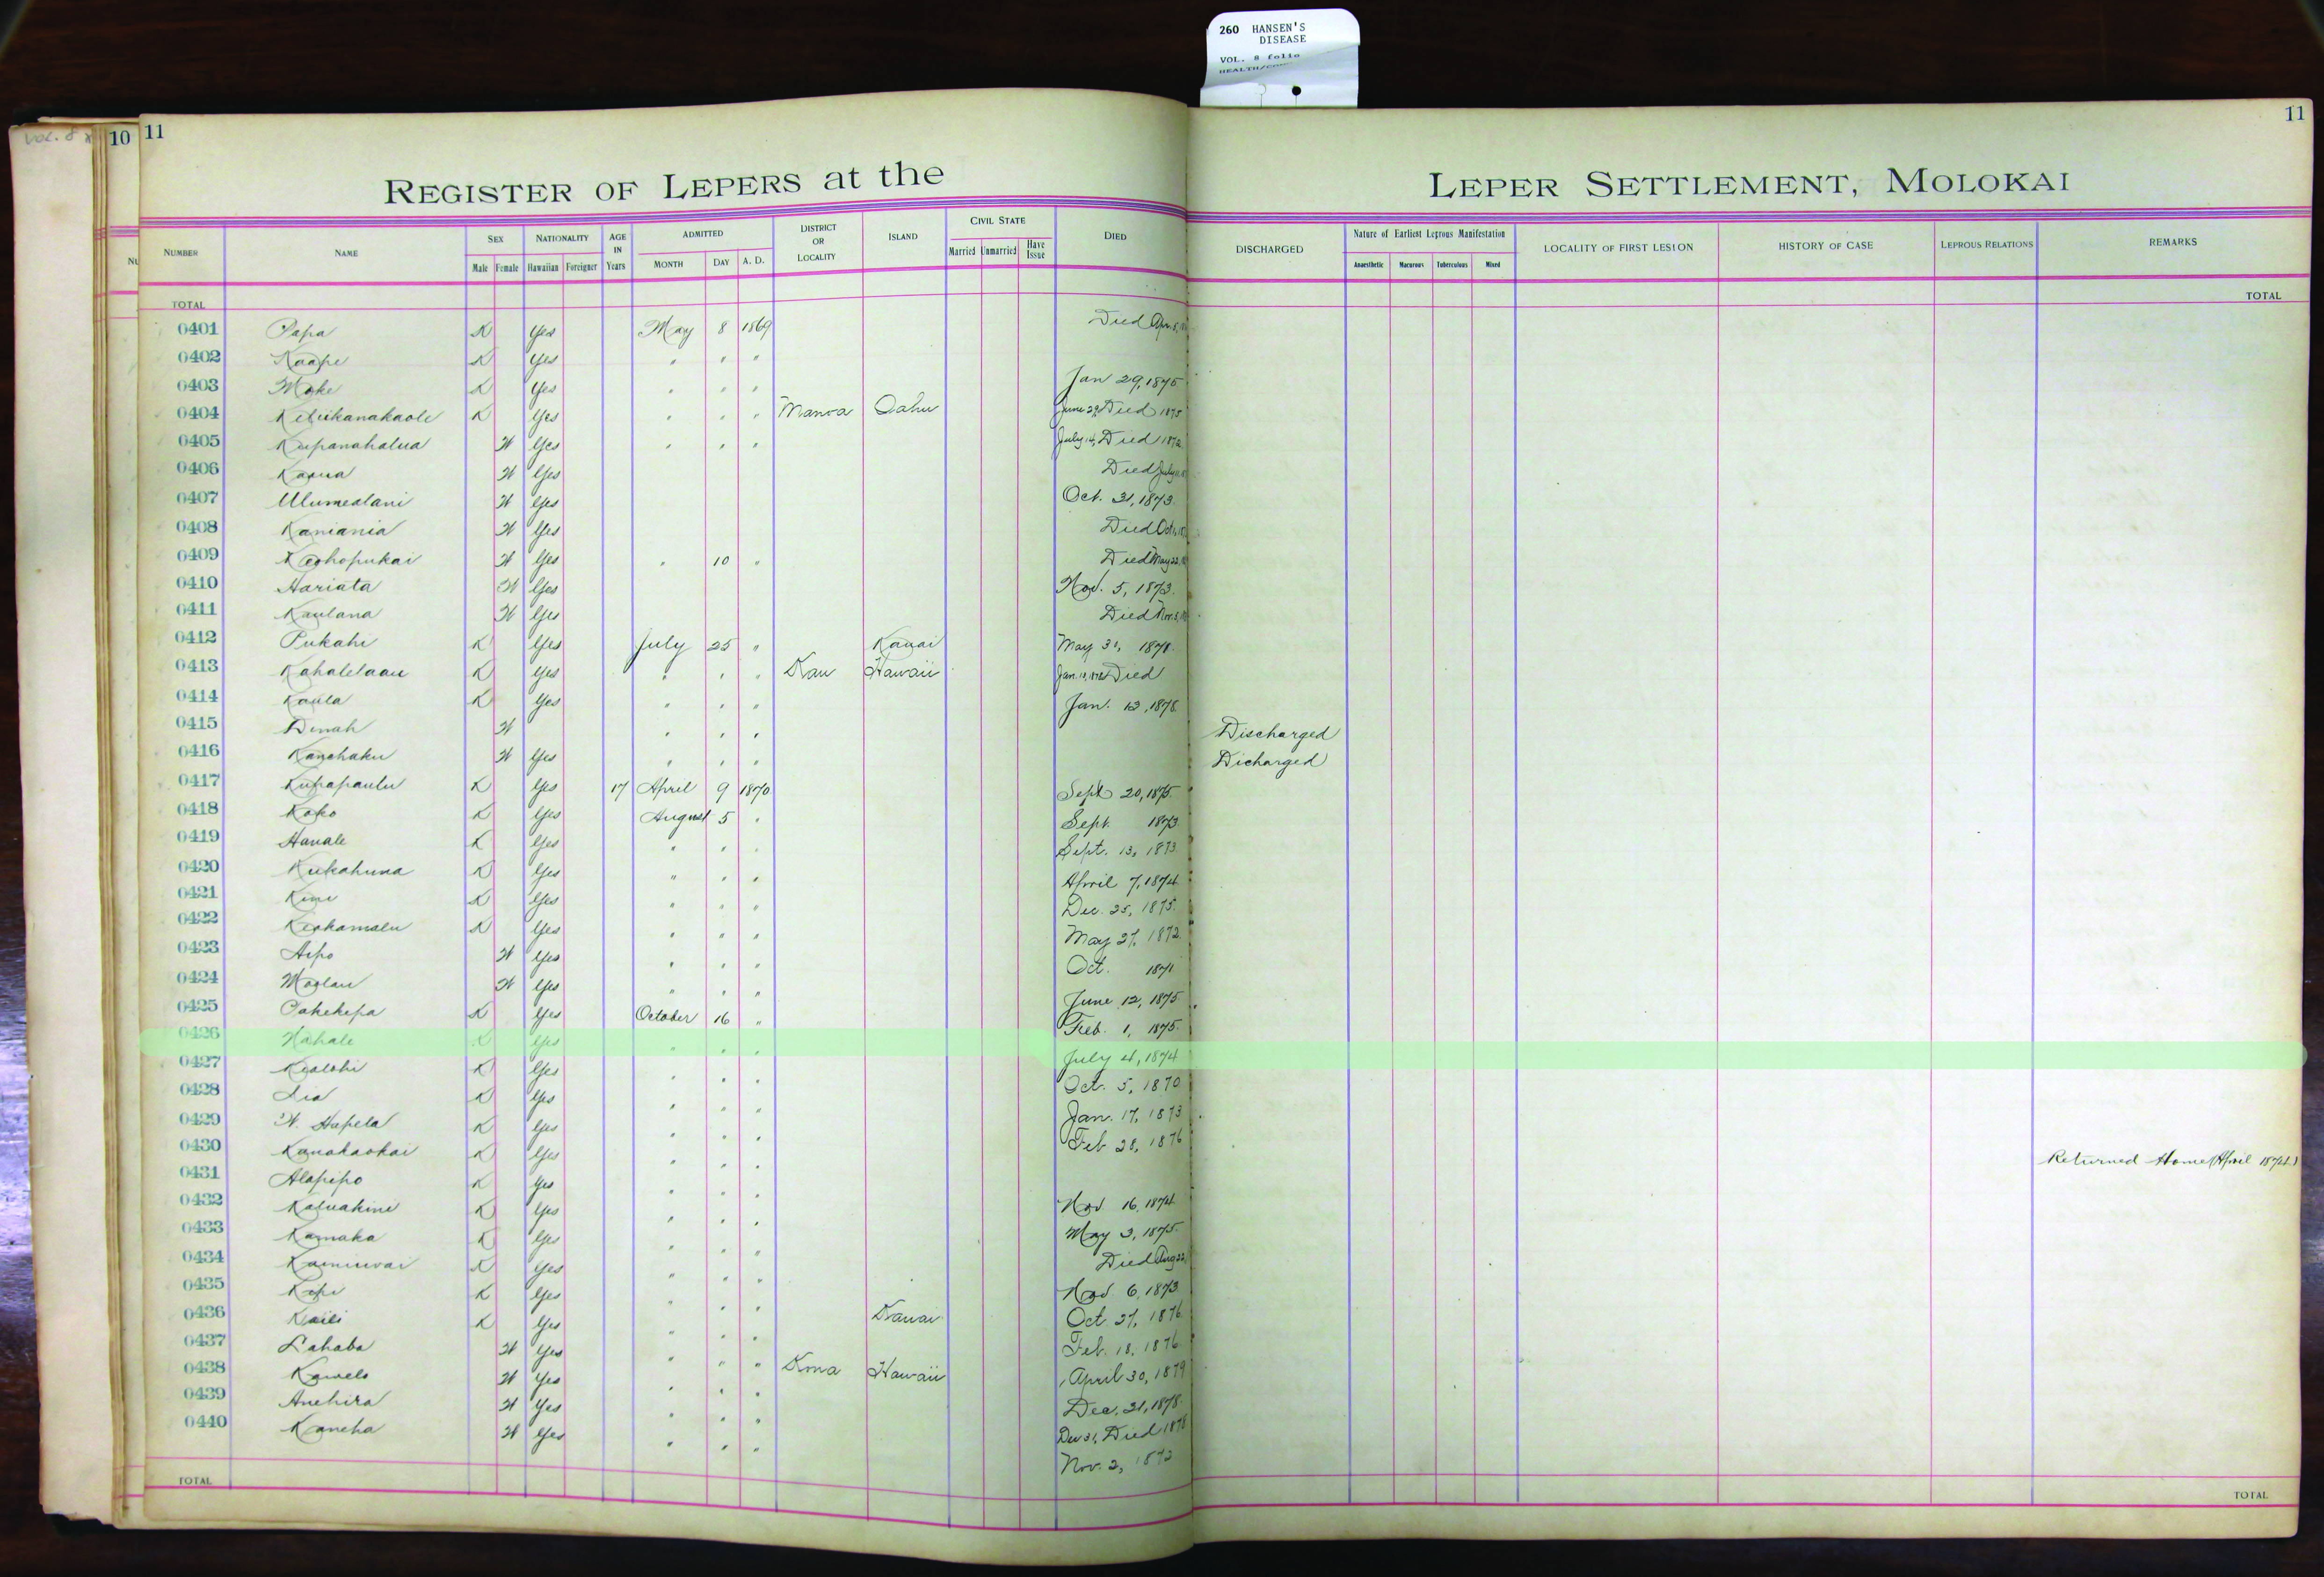 260 HANSEN'S
DISEASE
VOL. 8 folio
VOL. 8
10 11
11
REGISTER OF LEPERS at the LEPER SETTLEMENT, MOLOKAI
NUMBER NAME SEX NATIONALITY AGE IN Years ADMITTED DISTRICT OR LOCALITY ISLAND CIVIL STATE DIED DISCHARGED Nature of Earliest Leprous Manifestation LOCALITY OF FIRST LESION HISTORY OF CASE LEPROUS RELATIONS REMARKS
Male Female Hawaiian Foreigner MONTH DAY A. D. Married Unmarried Have Issue Anaesthetic Macurous Tuberculous Mixed
TOTAL TOTAL
0401 Papa K Yes May 8 1869 Died Apr. 8,
0402 Kaape K Yes " " "
0403 Moke K Yes " " " Jan 29, 1875
0404 Keliikanakaole K Yes " " " Manoa Oahu June 29, Died 1875
0405 Kupanahalua W Yes " " " July 14, Died 1872
0406 Kaaua W Yes Died July
0407 Ulumealani W Yes Oct. 31, 1873.
0408 Kaniania W Yes Died Oct.
0409 Keohopukai W Yes " 10 " Died May 22,
0410 Hariata W Yes Nov. 5, 1873.
0411 Kaulana W Yes Died Nov. 5,
0412 Pukahi K Yes July 25 " Kauai May 31, 1878.
0413 Kahalelaau K Yes " " " Kau Hawaii Jan. Died
0414 Kaula K Yes " " " Jan. 12, 1878.
0415 Dinah W " " " Discharged
0416 Kanehaku W Yes " " " Dicharged
0417 Kupapaulu K Yes 17 April 9 1870 Sept 20, 1875.
0418 Koko K Yes August 5 " Sept. 1873
0419 Hanale K Yes " " " Sept. 13, 1873
0420 Kukahuna K Yes " " " April 7, 1874
0421 Kimi K Yes " " " Dec. 25, 1875.
0422 Keokamalu K Yes " " " May 27, 1872
0423 Aipo W Yes " " " Oct. 1871
0424 Moolau W Yes " " " June 12, 1875
0425 Pakekepa K Yes October 16 " Feb. 1, 1875.
0426 Nahale K Yes " " " July 4, 1874
0427 Kealohi K Yes " " " Oct. 5, 1870
0428 Lia K Yes " " " Jan. 17, 1873
0429 W. Hapela K Yes " " " Feb 28, 1876
0430 Kanakaokai K Yes " " " Returned Home (April 1874.)
0431 Alapipo K Yes " " " Nov 16, 1874
0432 Kaluakini K Yes " " " May 3, 1875.
0433 Kamaka K Yes " " " Died Aug 22,
0434 Kaminwai K Yes " " " Nov. 6, 1873
0435 Kepi K Yes " " " Oct. 27, 1876
0436 Kaili K Yes " " " Kauai Feb. 18, 1876
0437 Lahaba W Yes " " " April 30, 1879
0438 Kawelo W Yes " " " Kona Hawaii Dec. 31, 1878.
0439 Anehira W Yes " " " Dec 31, Died 1878
0440 Kaneha W Yes " " " Nov. 2, 1872
TOTAL TOTAL